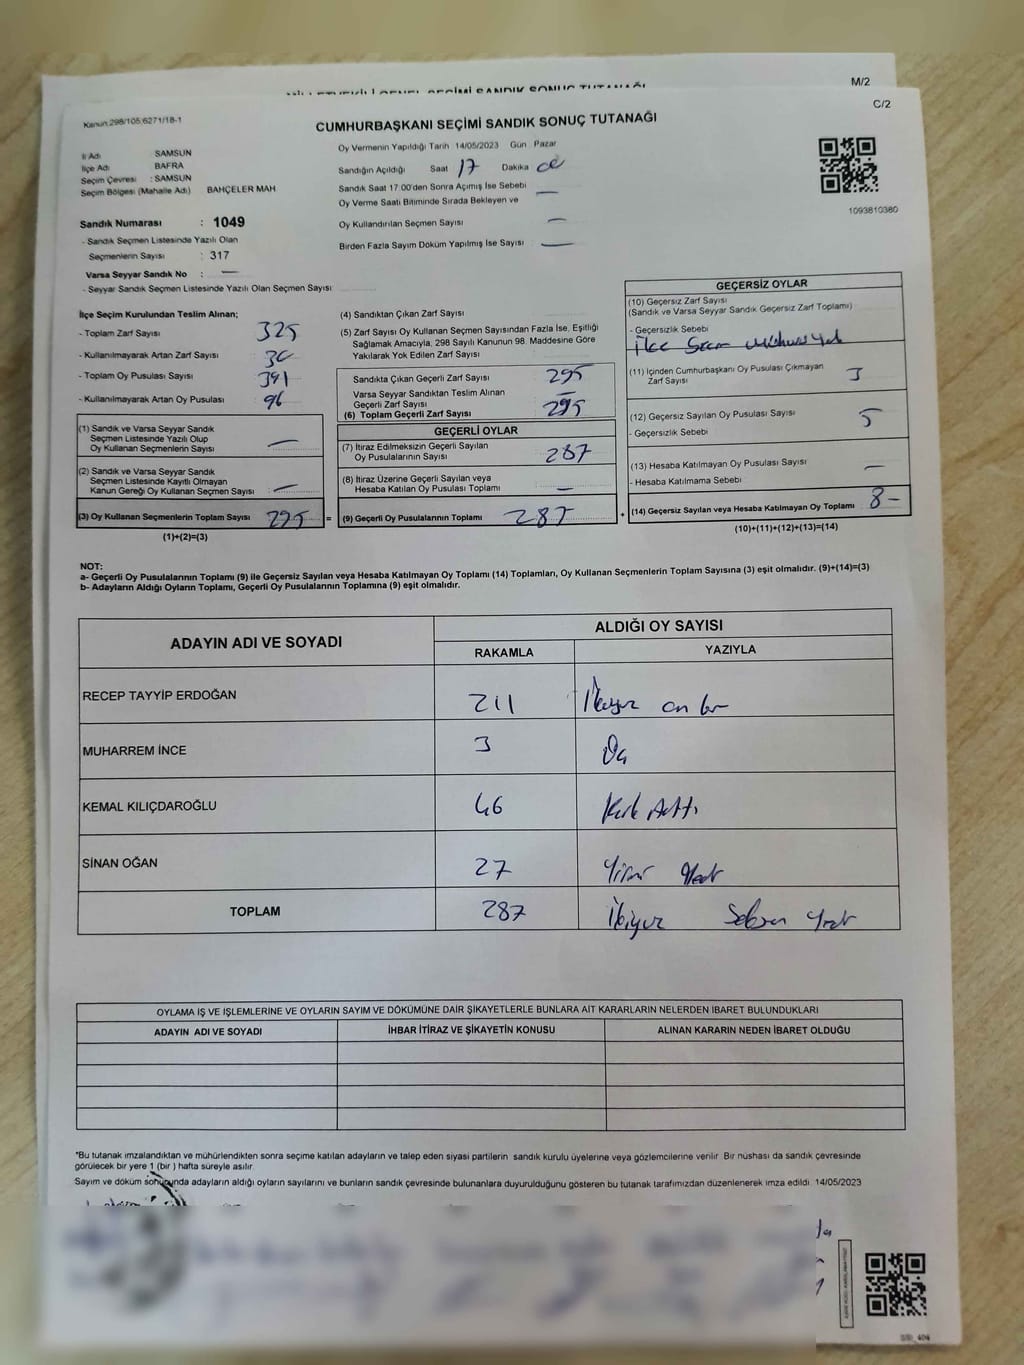 MİLLETVEKİLİ GENEL SEÇİMİ SANDIK SONUÇ TUTANAĞI
M/2
C/2
Kanun:298/105;6271/18-1
CUMHURBAŞKANI SEÇİMİ SANDIK SONUÇ TUTANAĞI
İl Adı SAMSUN
İlçe Adı BAFRA
Seçim Çevresi : SAMSUN
Seçim Bölgesi (Mahalle Adı) BAHÇELER MAH.
Sandık Numarası : 1049
- Sandık Seçmen Listesinde Yazılı Olan
Seçmenlerin Sayısı : 317
Varsa Seyyar Sandık No : —
- Seyyar Sandık Seçmen Listesinde Yazılı Olan Seçmen Sayısı
Oy Vermenin Yapıldığı Tarih 14/05/2023 Gün Pazar
Sandığın Açıldığı Saat 17 Dakika
Sandık Saat 17:00'den Sonra Açılmış İse Sebebi —
Oy Verme Saati Bitiminde Sırada Bekleyen ve
Oy Kullandırılan Seçmen Sayısı —
Birden Fazla Sayım Döküm Yapılmış İse Sayısı —
1093810380
İlçe Seçim Kurulundan Teslim Alınan;
- Toplam Zarf Sayısı 325
- Kullanılmayarak Artan Zarf Sayısı
- Toplam Oy Pusulası Sayısı 391
- Kullanılmayarak Artan Oy Pusulası 96
(1) Sandık ve Varsa Seyyar Sandık
Seçmen Listesinde Yazılı Olup
Oy Kullanan Seçmenlerin Sayısı —
(2) Sandık ve Varsa Seyyar Sandık
Seçmen Listesinde Kayıtlı Olmayan
Kanun Gereği Oy Kullanan Seçmen Sayısı —
(3) Oy Kullanan Seçmenlerin Toplam Sayısı 295 =
(1)+(2)=(3)
(4) Sandıktan Çıkan Zarf Sayısı
(5) Zarf Sayısı Oy Kullanan Seçmen Sayısından Fazla İse, Eşitliği
Sağlamak Amacıyla, 298 Sayılı Kanunun 98. Maddesine Göre
Yakılarak Yok Edilen Zarf Sayısı
Sandıkta Çıkan Geçerli Zarf Sayısı 295
Varsa Seyyar Sandıktan Teslim Alınan
Geçerli Zarf Sayısı —
(6) Toplam Geçerli Zarf Sayısı 295
GEÇERLİ OYLAR
(7) İtiraz Edilmeksizin Geçerli Sayılan
Oy Pusulalarının Sayısı 287
(8) İtiraz Üzerine Geçerli Sayılan veya
Hesaba Katılan Oy Pusulası Toplamı —
(9) Geçerli Oy Pusulalarının Toplamı 287 +
GEÇERSİZ OYLAR
(10) Geçersiz Zarf Sayısı
(Sandık ve Varsa Seyyar Sandık Geçersiz Zarf Toplamı)
- Geçersizlik Sebebi
(11) İçinden Cumhurbaşkanı Oy Pusulası Çıkmayan
Zarf Sayısı 3
(12) Geçersiz Sayılan Oy Pusulası Sayısı 5
- Geçersizlik Sebebi
(13) Hesaba Katılmayan Oy Pusulası Sayısı —
- Hesaba Katılmama Sebebi
(14) Geçersiz Sayılan veya Hesaba Katılmayan Oy Toplamı 8 -
(10)+(11)+(12)+(13)=(14)
NOT:
a- Geçerli Oy Pusulalarının Toplamı (9) ile Geçersiz Sayılan veya Hesaba Katılmayan Oy Toplamı (14) Toplamları, Oy Kullanan Seçmenlerin Toplam Sayısına (3) eşit olmalıdır. (9)+(14)=(3)
b- Adayların Aldığı Oyların Toplamı, Geçerli Oy Pusulalarının Toplamına (9) eşit olmalıdır.
ADAYIN ADI VE SOYADI
ALDIĞI OY SAYISI
RAKAMLA YAZIYLA
RECEP TAYYİP ERDOĞAN 211 İkiyüz on bir
MUHARREM İNCE 3
KEMAL KILIÇDAROĞLU 46 Kırk Altı
SİNAN OĞAN 27 Yirmi Yedi
TOPLAM 287 İkiyüz Seksen Yedi
OYLAMA İŞ VE İŞLEMLERİNE VE OYLARIN SAYIM VE DÖKÜMÜNE DAİR ŞİKAYETLERLE BUNLARA AİT KARARLARIN NELERDEN İBARET BULUNDUKLARI
ADAYIN ADI VE SOYADI İHBAR İTİRAZ VE ŞİKAYETİN KONUSU ALINAN KARARIN NEDEN İBARET OLDUĞU
*Bu tutanak imzalandıktan ve mühürlendikten sonra seçime katılan adayların ve talep eden siyasi partilerin sandık kurulu üyelerine veya gözlemcilerine verilir. Bir nüshası da sandık çevresinde
görülecek bir yere 1 (bir ) hafta süreyle asılır.
Sayım ve döküm sonucunda adayların aldığı oyların sayılarını ve bunların sandık çevresinde bulunanlara duyurulduğunu gösteren bu tutanak tarafımızdan düzenlenerek imza edildi. 14/05/2023